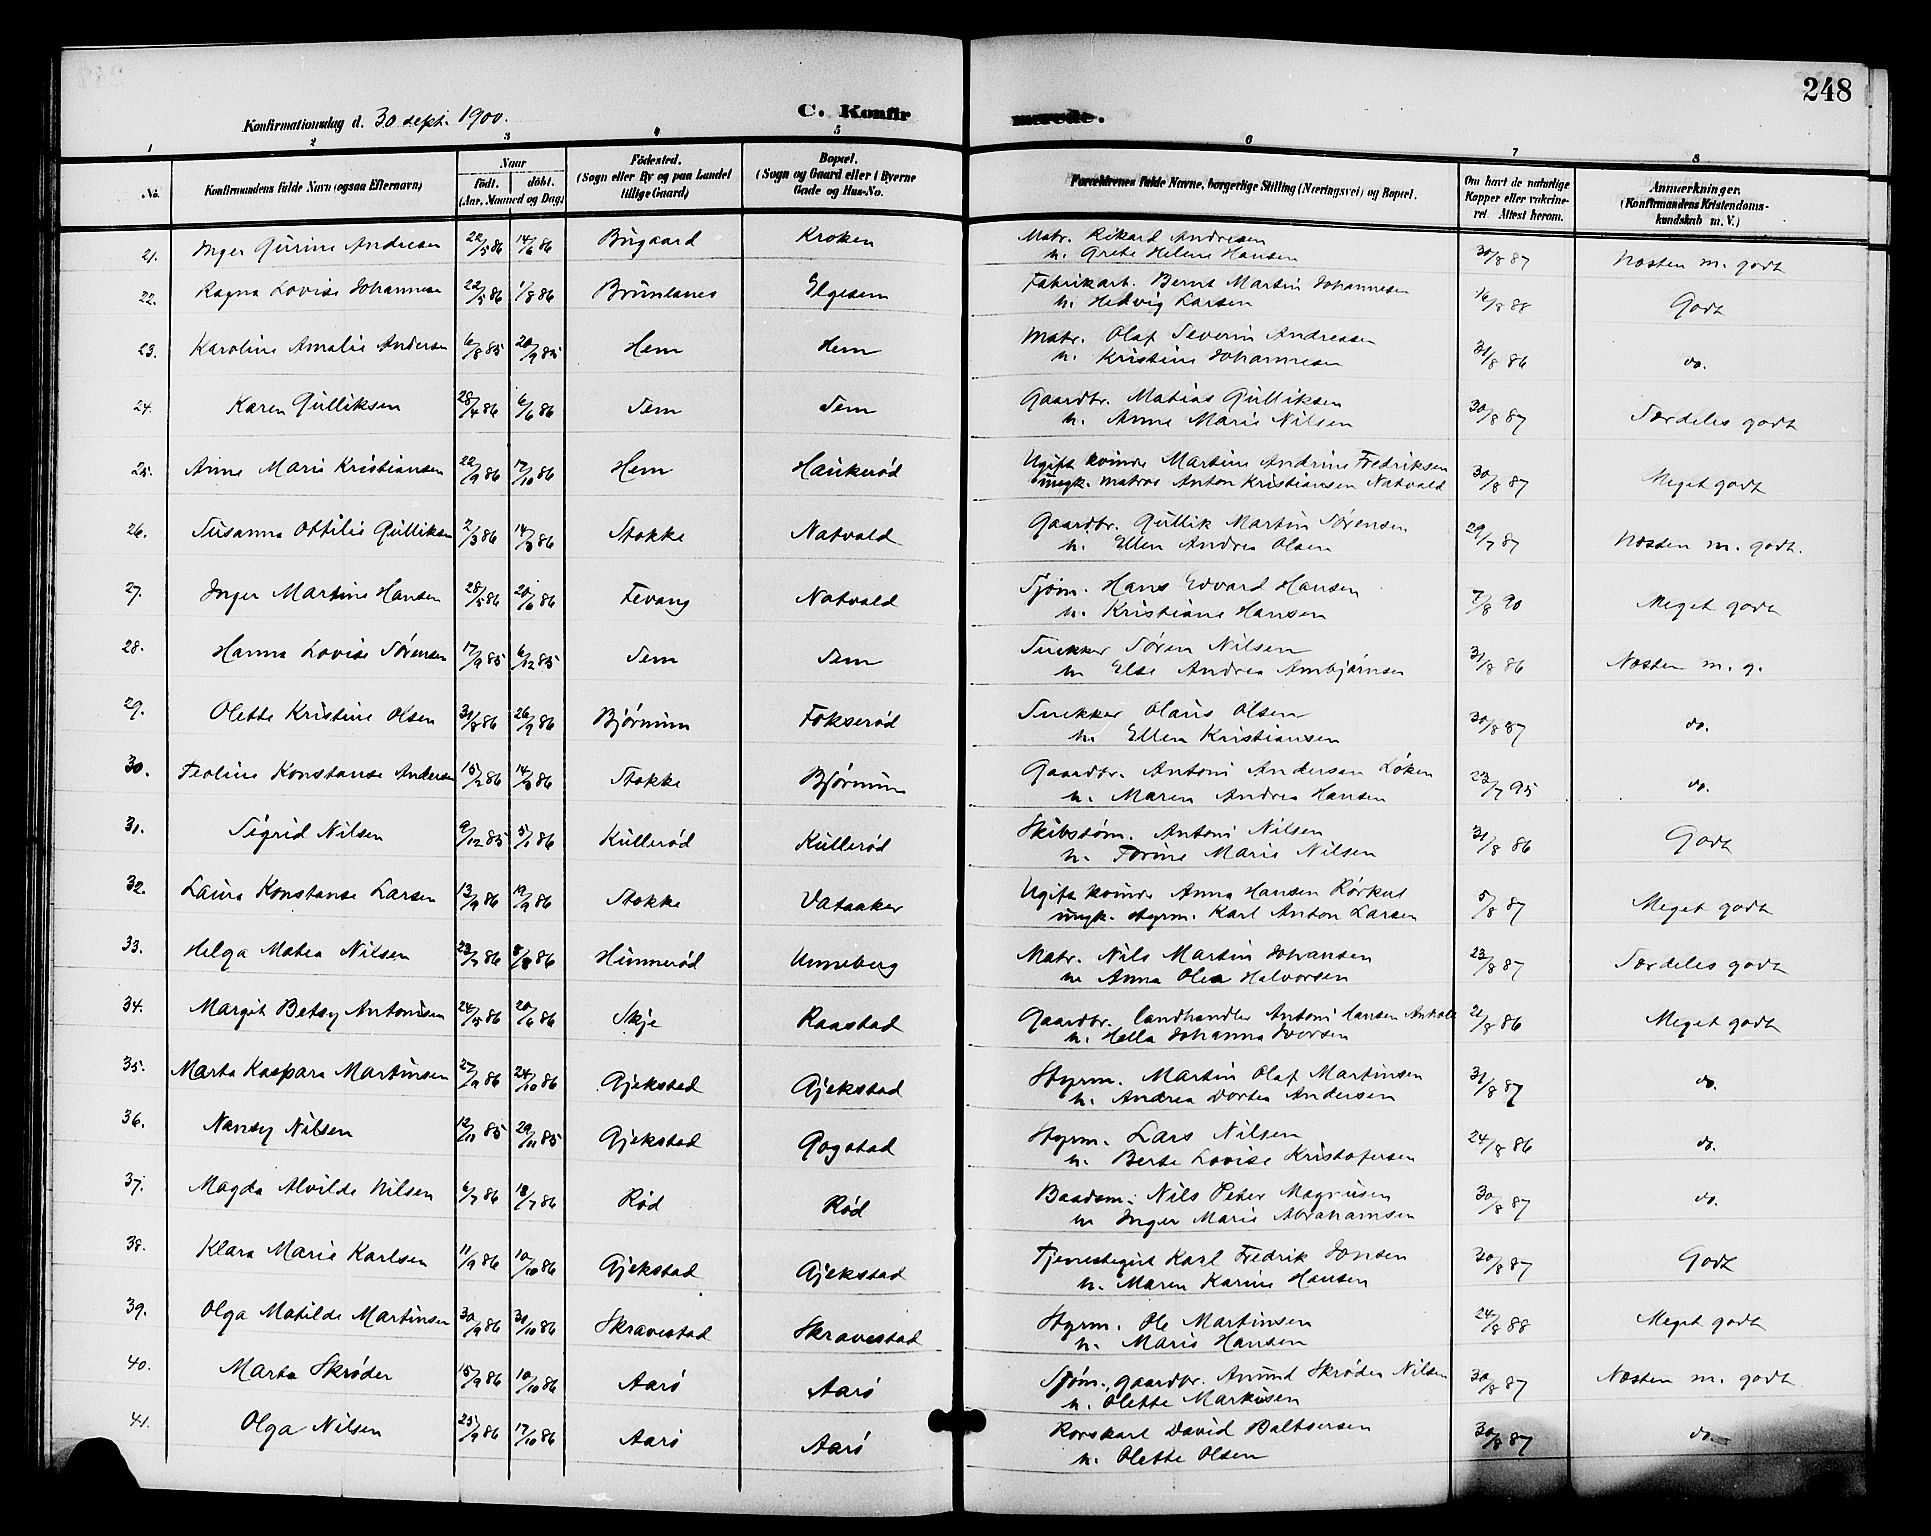 248
Konfirmationsdag d. 30 sept. 1900.
C. Konfirmerede.
1 2 3 4 5 6 7 8
No. Konfirmandens fulde Navn (ogsaa Efternavn) Naar födt. döbt. (Aar, Maaned og Dag) Födested. (Sogn eller By og paa Landet tillige Gaard) Bopæl. (Sogn og Gaard eller i Byerne Gade og Hus-No. Forældrenes fulde Navne, borgerlige Stilling (Næringsvei) og Bopæl. Om havt de naturlige Kopper eller vakcineret Attest herom. Anmærkninger. (Konfirmandens Kristendomskundskab m. V.)
21. Inger Gurine Andresen 22/5 86 14/6 86 Bugaard Kroken Matr. Rikard Andresen 30/8 87 Næsten m. godt
h. Grete Helene Hansen
22. Ragna Lovise Johannesen 22/5 86 1/8 86 Brunlanes Elgesem Fabrikarb. Bernt Martin Johannesen 16/8 88 Godt
h. Hedvig Larsen
23. Karoline Amalie Andersen 6/8 85 20/9 85 Hem Hem Matr. Olaf Severin Andreasen 31/8 86 do.
h. Kristine Johannesen
24. Karen Gulliksen 28/4 86 6/6 86 Sem Sem Gaardbr. Matias Gulliksen 30/8 87 Særdeles godt
h. Anne Marie Nilsen
25. Anne Marie Kristiansen 22/9 86 17/10 86 Hem Haukerød Ugift kvinde Martine Andrine Fredriksen 30/8 87 Meget godt
ungk. matros Anton Kristiansen Natvald
26. Susanna Ottilie Gulliksen 2/3 86 14/3 86 Stokke Natvald Gaardbr. Gullik Martin Sørensen 29/7 87 Næsten m. godt.
h. Ellen Andrea Olsen
27. Inger Martine Hansen 28/5 86 20/6 86 Fevang Natvald Sjøm. Hans Edvard Hansen 7/8 90 Meget godt
h. Kristiane Hansen
28. Hanna Lovise Sørensen 17/9 85 6/12 85 Sem Sem Snekker Søren Nilsen 31/8 86 Næsten m. g.
h. Else Andrea Ambjørnsen
29. Olette Kristine Olsen 31/8 86 26/9 86 Bjørnum Fokserød Snekker Olaus Olsen 30/8 87 do.
h. Ellen Kristiansen
30. Teoline Konstanse Andersen 15/2 86 14/3 86 Stokke Bjørnum Gaardbr. Antoni Andersen Løken 23/7 95 do.
h. Maren Andrea Hansen
31. Sigrid Nilsen 9/12 85 5/1 86 Kullerød Kullerød Skibstøm. Antoni Nilsen 31/8 86 Godt
h. Torine Marie Nilsen
32. Laura Konstanse Larsen 13/9 86 19/9 86 Stokke Vataaker Ugift kvinde Anna Hansen Rørkul 5/8 87 Meget godt
ungk. styrm. Karl Anton Larsen
33. Helga Matea Nilsen 23/7 86 8/8 86 Himmerød Unneberg Matr. Nils Martin Johansen 23/8 87 Særdeles godt
h. Anna Olea Halvorsen
34. Margit Betsy Antonisen 24/5 86 20/6 86 Skje Raastad Gaardbr. landhandler Antoni Hansen 21/8 86 Meget godt
h. Hella Johanna Iversen
35. Marta Kaspara Martinsen 27/9 86 24/10 86 Gjekstad Gjekstad Styrm. Martin Olaf Martinsen 31/8 87 do.
h. Andrea Dortea Andersen
36. Nansy Nilsen 12/11 85 29/11 85 Gjekstad Gogstad Styrm. Lars Nilsen 24/8 86 do.
h. Berte Lovise Kristofersen
37. Magda Alvilde Nilsen 6/7 86 18/7 86 Rød Rød Baadsm. Nils Peter Magnusen 30/8 87 do.
h. Inger Marie Abrahamsen
38. Klara Marie Karlsen 11/9 86 10/10 86 Gjekstad Gjekstad Tjenestegut Karl Fredrik Jonsen 30/8 87 Godt
h. Maren Karine Hansen
39. Olga Matilde Martinsen 30/9 86 31/10 86 Skravestad Skravestad Styrm. Ole Martinsen 24/8 88 Meget godt
h. Maris Hansen
40. Marta Skrøder 15/9 86 10/10 86 Aarø Aarø Sjøm., gaardbr. Anund Skrøder Nilsen 30/8 87 Næsten m. godt
h. Olette Markusen
41. Olga Nilsen 25/9 86 17/10 86 Aarø Aarø Rorskarl David Baltsersen 30/8 87 do.
h. Olette Olsen